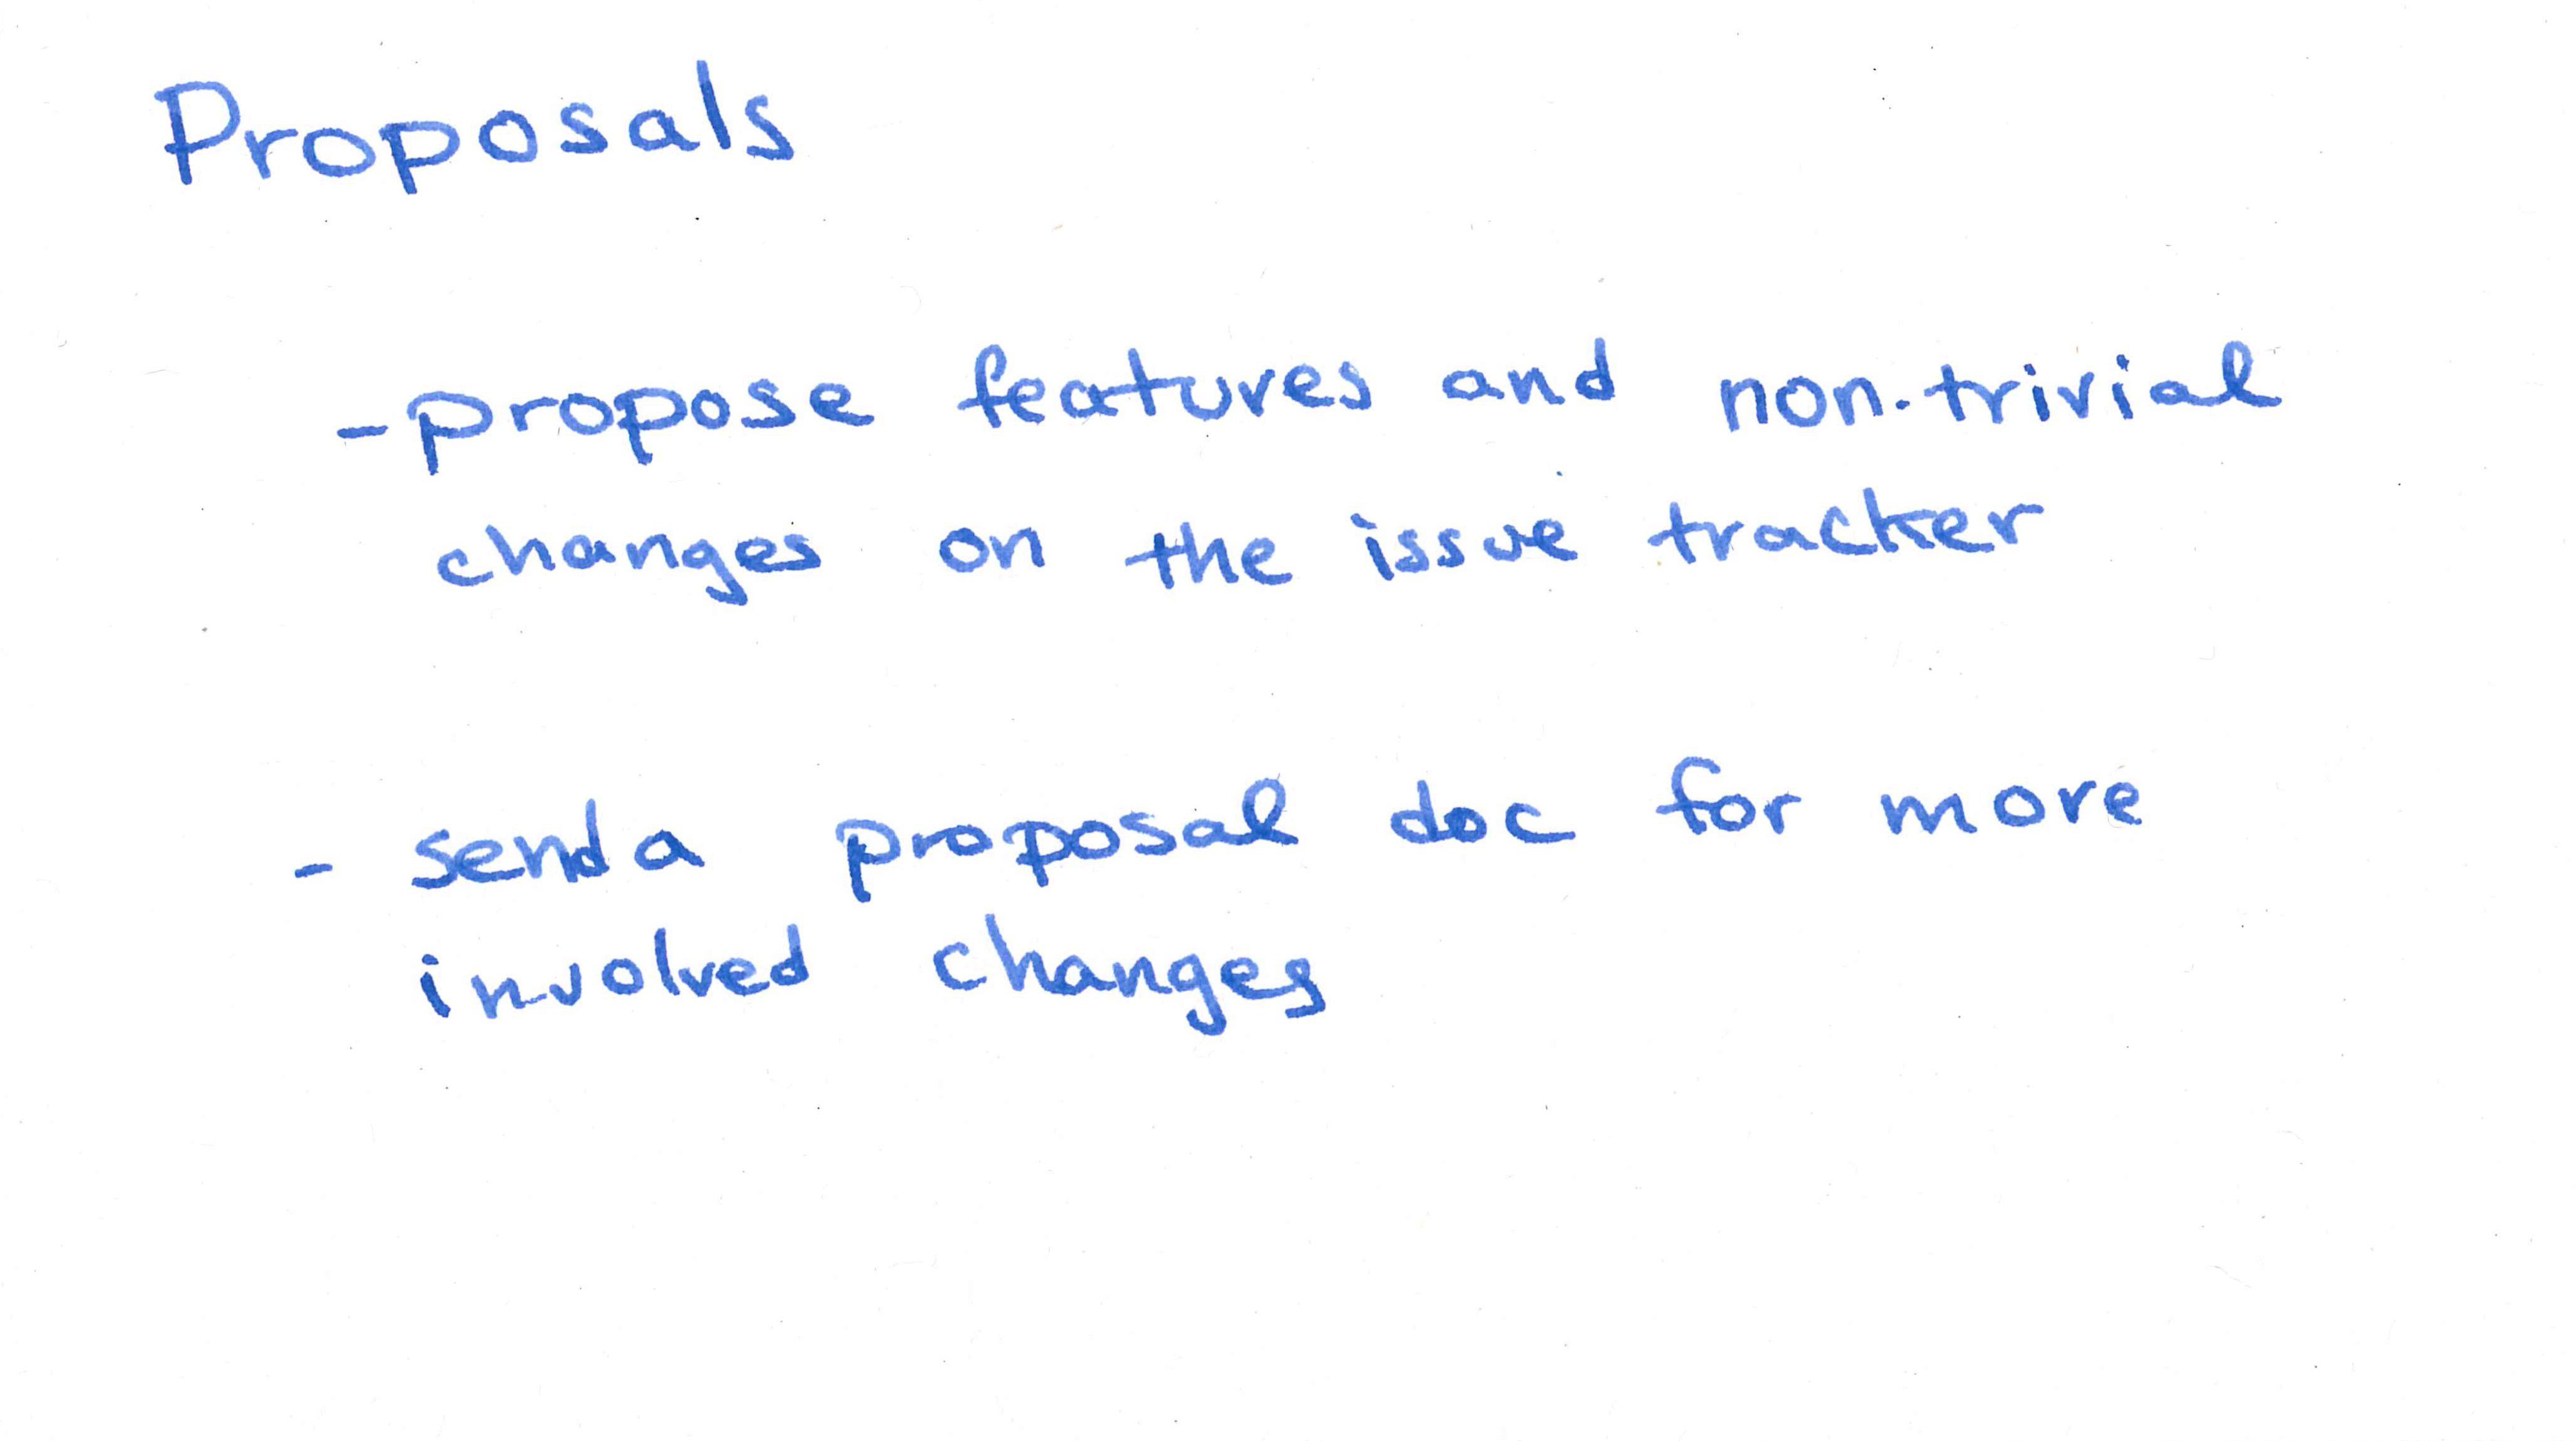 Proposals
- propose features and non-trivial
changes on the issue tracker
- send a proposal doc for more
involved changes